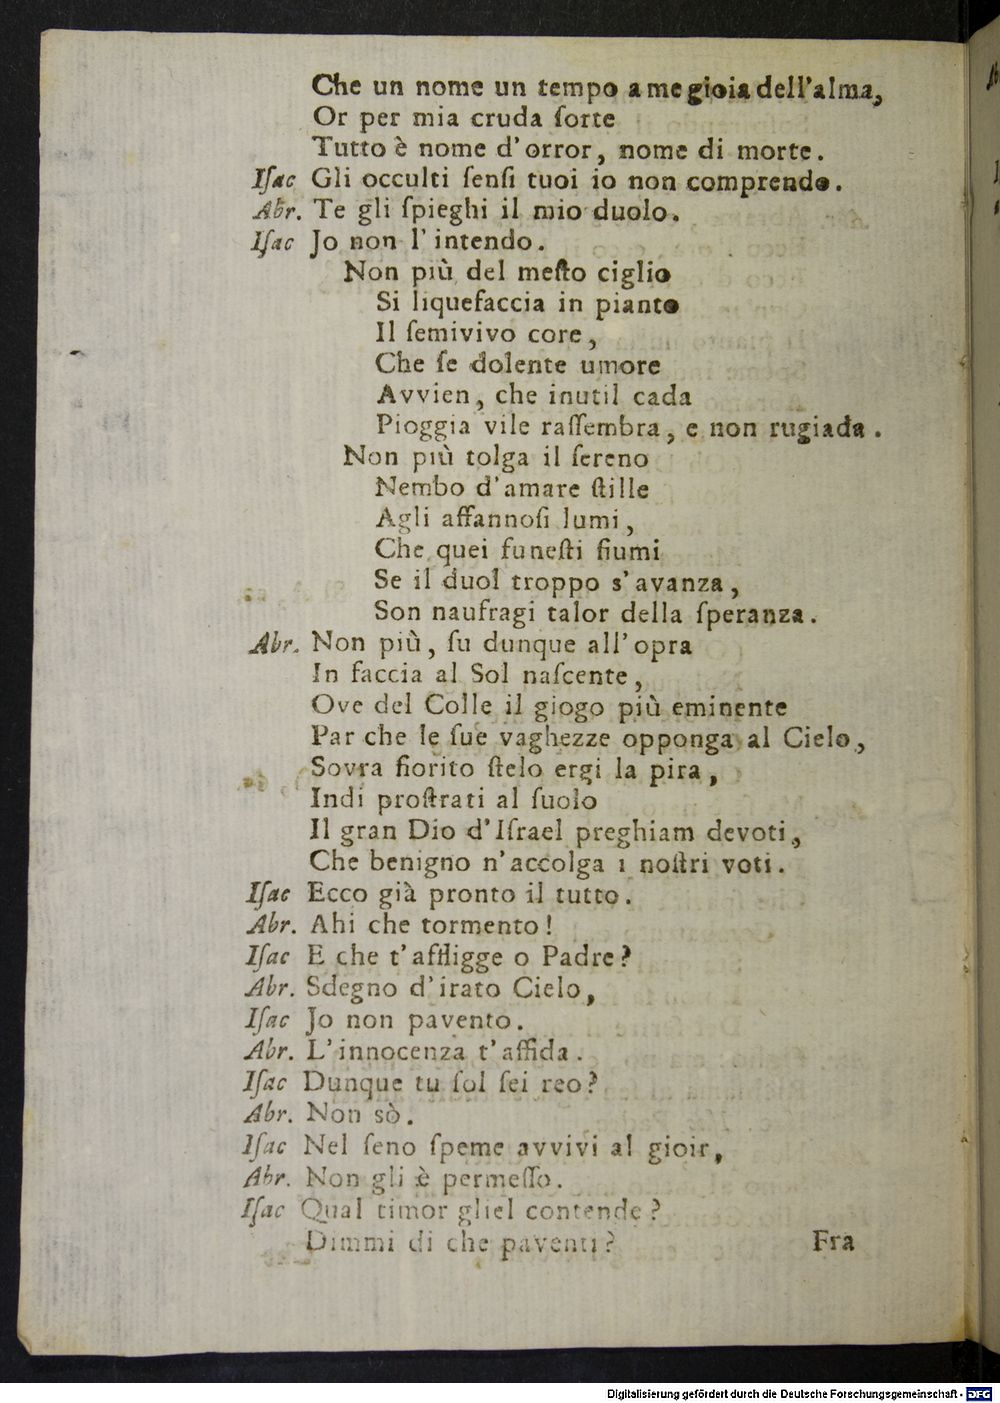 Che un nome un tempo a me gioia dell'alma,
Or per mia cruda ſorte
Tutto è nome d'orror, nome di morte.
Iſac Gli occulti ſenſi tuoi io non comprendo.
Abr. Te gli ſpieghi il mio duolo.
Iſac Jo non l'intendo.
Non più del meſto ciglio
Si liquefaccia in pianto
Il ſemivivo core,
Che ſe dolente umore
Avvien, che inutil cada
Pioggia vile raſſembra, e non rugiada.
Non più tolga il ſereno
Nembo d'amare ſtille
Agli affannoſi lumi,
Che quei funeſti fiumi
Se il duol troppo s'avanza,
Son naufragi talor della ſperanza.
Abr. Non più, ſu dunque all'opra
In faccia al Sol naſcente,
Ove del Colle il giogo più eminente
Par che le ſue vaghezze opponga al Cielo,
Sovra fiorito ſtelo ergi la pira,
Indi proſtrati al ſuolo
Il gran Dio d'Iſrael preghiam devoti,
Che benigno n'accolga i noſtri voti.
Iſac Ecco già pronto il tutto.
Abr. Ahi che tormento!
Iſac E che t'affligge o Padre?
Abr. Sdegno d'irato Cielo,
Iſac Jo non pavento.
Abr. L'innocenza t'affida.
Iſac Dunque tu ſol ſei reo?
Abr. Non sò.
Iſac Nel ſeno ſpeme avvivi al gioir,
Abr. Non gli è permeſſo.
Iſac Qual timor gliel contende?
Dimmi di che paventi?
Fra
Digitalisierung gefördert durch die Deutsche Forschungsgemeinschaft - DFG